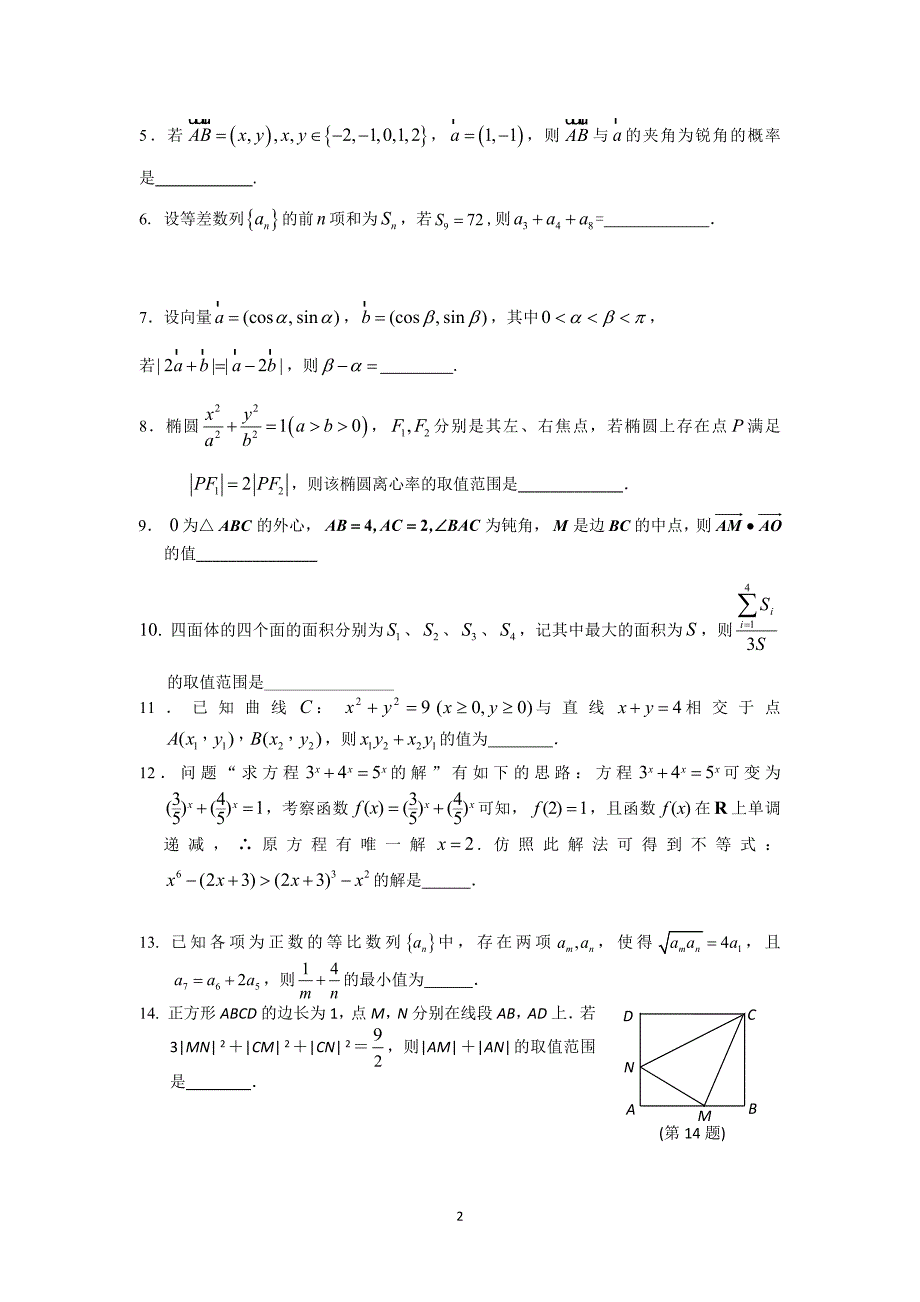 5．若 AB = (x, y), x, y ∈ {−2, −1, 0, 1, 2}， a = (1, −1)，则 AB 与 a 的夹角为锐角的概率
是____________．
6. 设等差数列 {aₙ} 的前 n 项和为 Sₙ，若 S₉ = 72，则 a₃ + a₄ + a₈ =_____________．
7．设向量 a = (cos α, sin α)， b = (cos β, sin β)，其中 0 < α < β < π，
若 | 2a + b |=| a − 2b |，则 β − α = _________．
8．椭圆 x²/a² + y²/b² = 1 (a > b > 0)， F₁, F₂ 分别是其左、右焦点，若椭圆上存在点 P 满足
|PF₁| = 2|PF₂|，则该椭圆离心率的取值范围是_____________．
9． 0 为△ ABC 的外心， AB = 4, AC = 2, ∠BAC 为钝角， M 是边 BC 的中点，则 AM • AO
的值_______________
10. 四面体的四个面的面积分别为 S₁、 S₂、 S₃、 S₄，记其中最大的面积为 S，则 ∑_{i=1}^{4} Sᵢ / 3S
的取值范围是________________
11．已知曲线 C： x² + y² = 9 (x ≥ 0, y ≥ 0) 与直线 x + y = 4 相交于点
A(x₁，y₁)，B(x₂，y₂)，则 x₁y₂ + x₂y₁ 的值为________．
12．问题“求方程 3ˣ + 4ˣ = 5ˣ 的解”有如下的思路：方程 3ˣ + 4ˣ = 5ˣ 可变为
(3/5)ˣ + (4/5)ˣ = 1，考察函数 f(x) = (3/5)ˣ + (4/5)ˣ 可知， f(2) = 1，且函数 f(x) 在 R 上单调
递减，∴原方程有唯一解 x = 2．仿照此解法可得到不等式：
x⁶ − (2x + 3) > (2x + 3)³ − x² 的解是______．
13. 已知各项为正数的等比数列 {aₙ} 中，存在两项 aₘ, aₙ，使得 √(aₘaₙ) = 4a₁，且
a₇ = a₆ + 2a₅，则 1/m + 4/n 的最小值为______．
14. 正方形 ABCD 的边长为 1，点 M，N 分别在线段 AB，AD 上．若
3|MN|²＋|CM|²＋|CN|²＝9/2，则|AM|＋|AN|的取值范围
是________．
D C
N
A M B
(第 14 题)
2